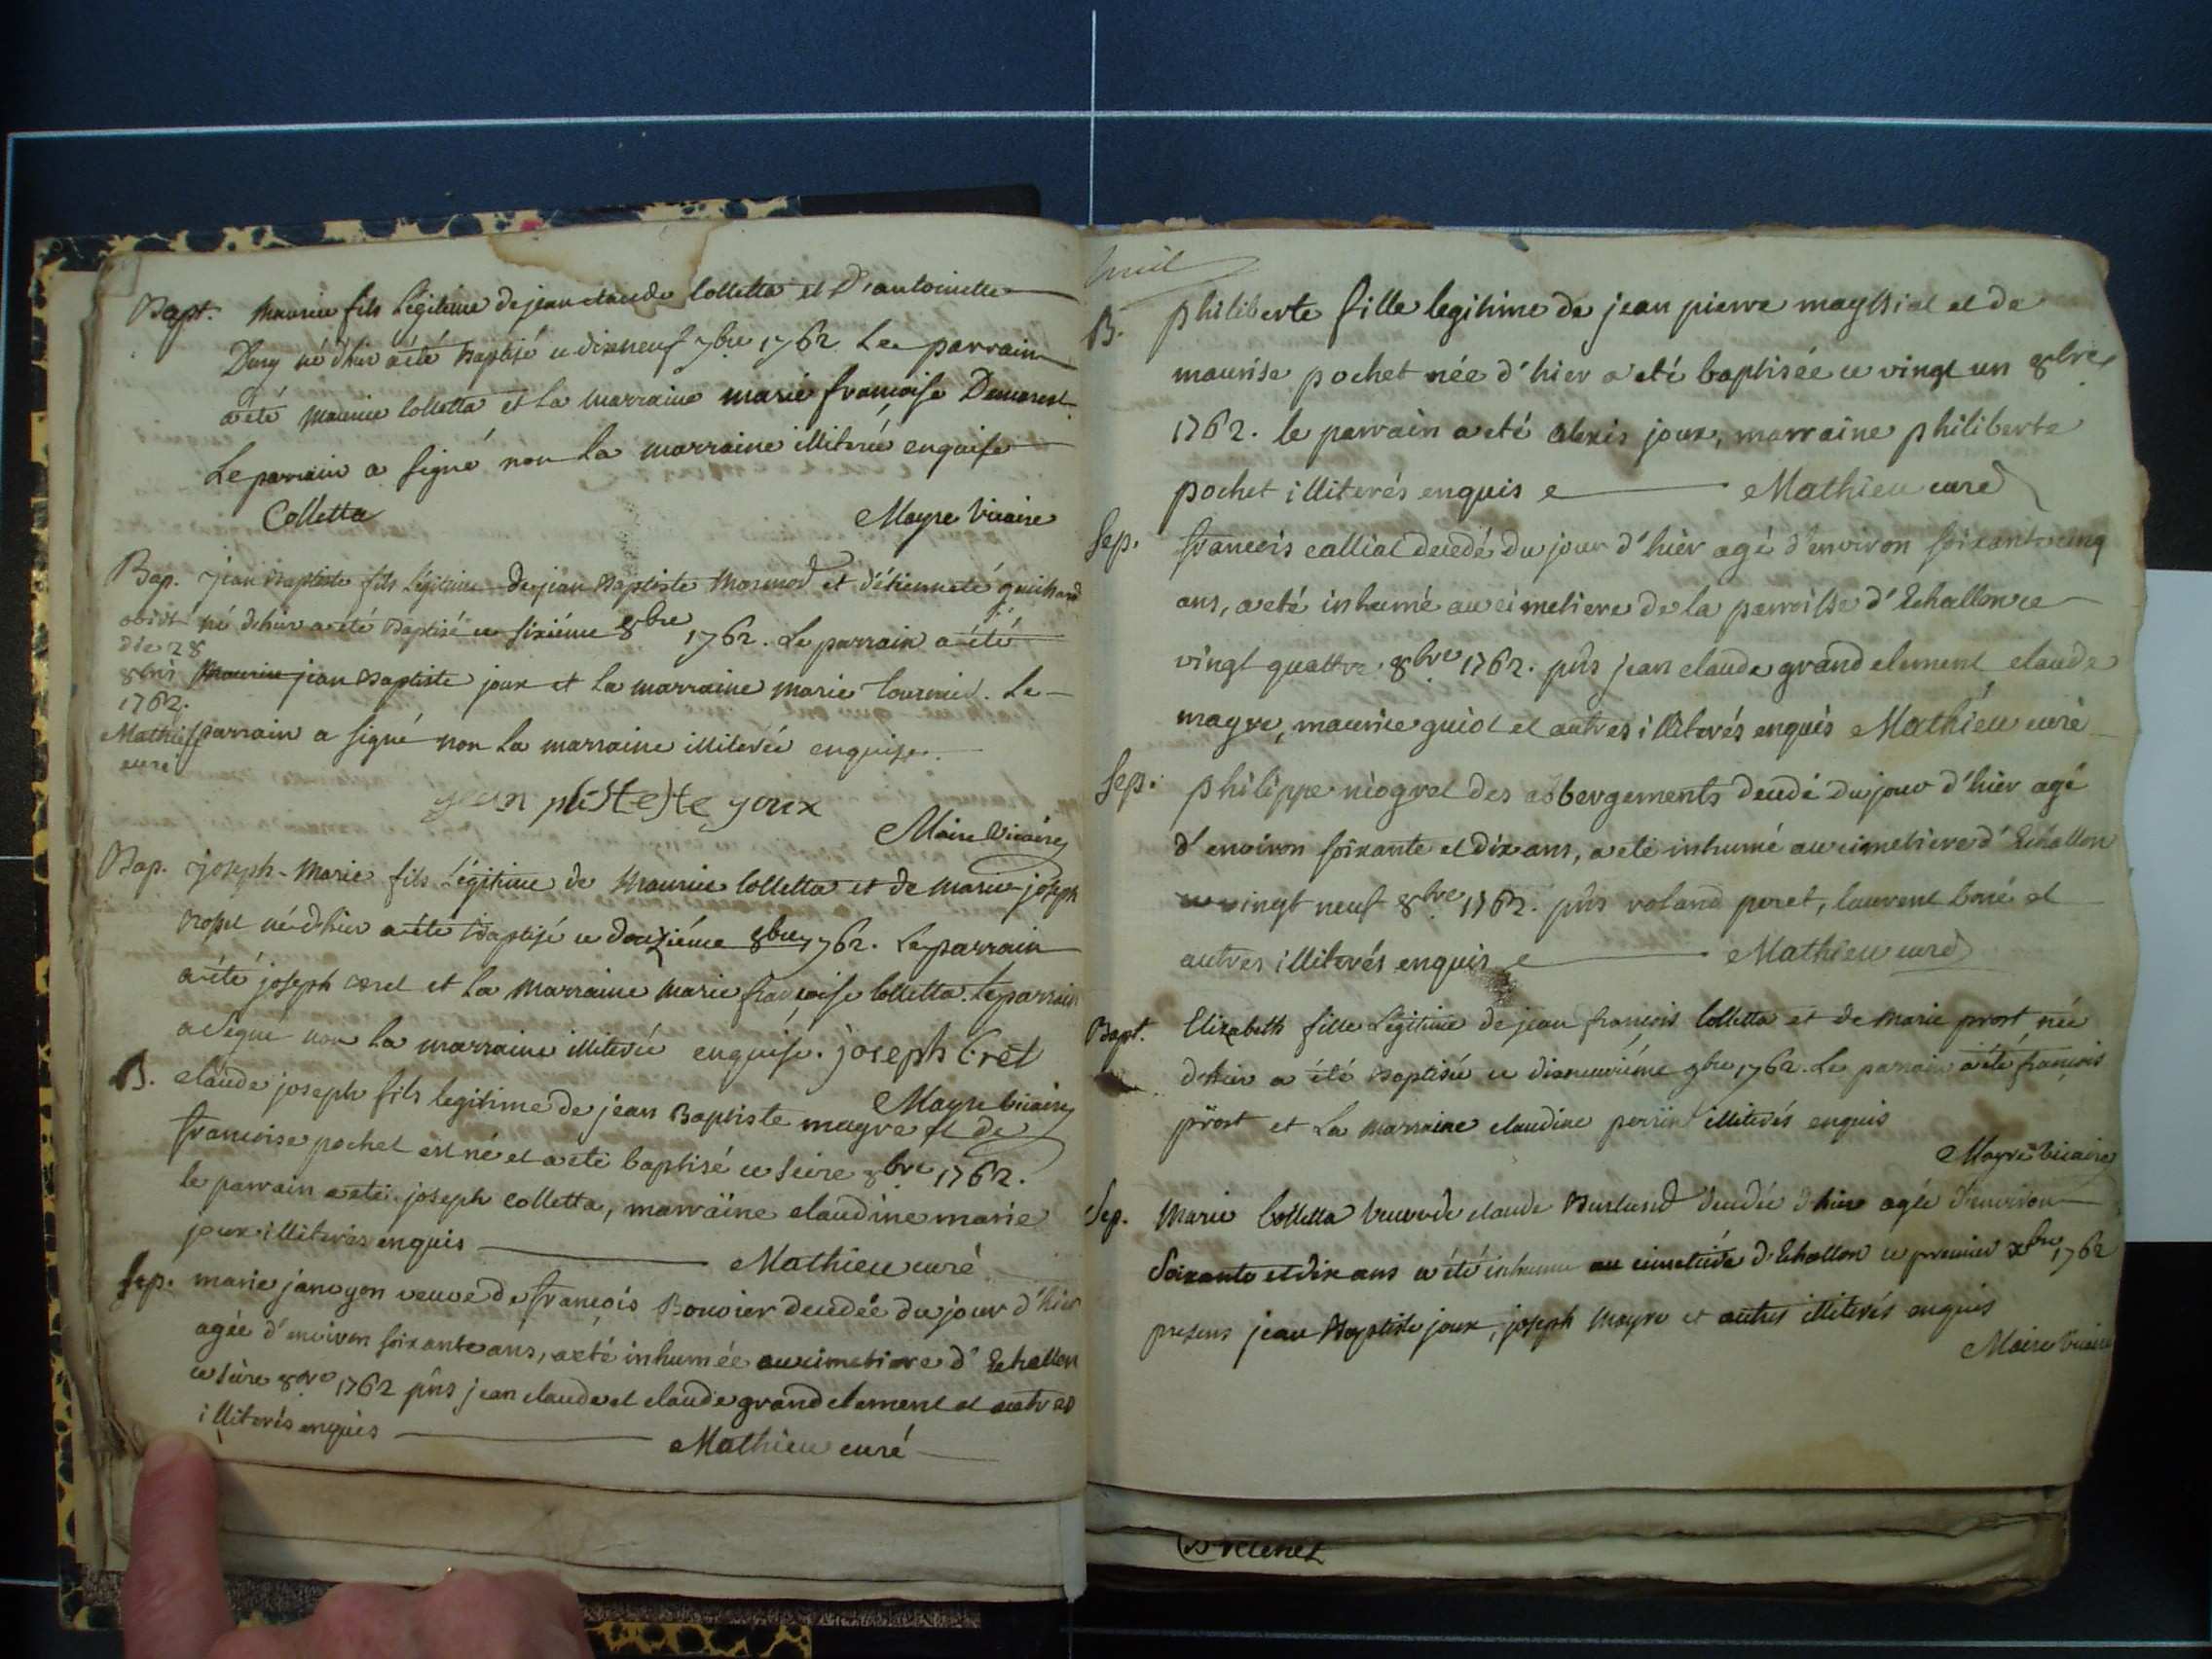 Bapt. Maurice fils Légitime de jean claude Colletta et D'antoinette
Dury né d'hier a été baptisé ce dixneuf 7bre 1762 Le parrain
a été Maurice Colletta et La marraine marie françoise
Le parrain a signé non La marraine illiterée enquise
Colletta Mayre Vicaire
Bap. jean baptiste fils Légitime de jean baptiste Mermod et d'étiennete guichard
obiit né d'hier a été baptisé ce sixiéme 8bre 1762. Le parrain a été
die 28
8bris Maurice jean baptiste joux et La marraine marie. Le
1762.
Mathieu parrain a signé non La marraine illiterée enquise.
curé
joux
Maire Vicaire
Bap. joseph-Marie fils Légitime de Maurice Colletta et de Marie-joseph
né d'hier a été baptisé ce douziéme 8bre 1762. Le parrain
a été joseph cret et La Marraine Marie françoise Colletta. Le parrain
a signé non La marraine illiterée enquise. joseph Cret
Mayre Vicaire
B. claude joseph fils legitime de jean Baptiste mayre et de
francoise pochet est né et a eté baptisé ce seize 8bre 1762.
le parrain a eté joseph colletta, marraine claudine marie
joux illiterés enquis Mathieu curé
Sep. marie janvyon veuve de françois Bouvier decedée du jour d'hier
agée d'environ soixante ans, a eté inhumée au cimetiere d'Echallon
ce seize 8bre 1762 pñs jean claude et claude grandclement et autres
illiterés enquis Mathieu curé
B. philiberte fille legitime de jean pierre mayssiat et de
maurise pochet née d'hier a eté baptisée ce vingt un 8bre
1762. le parrain a eté alexis joux, marraine philiberte
pochet illiterés enquis Mathieu curé
Sep. françois calliat decedé du jour d'hier agé d'environ soixante cinq
ans, a eté inhumé au cimetiere de la parroisse d'Echallon ce
vingt quattre 8bre 1762. pñs jean claude grandclement claude
mayre, maurice guiot et autres illiterés enquis Mathieu curé
Sep. philippe niogret des abbergements decedé du jour d'hier agé
d'environ soixante et dix ans, a eté inhumé au cimetiere d'Echallon
ce vingt neuf 8bre 1762. pñs roland peret, laurent et
autres illiterés enquis Mathieu curé
Bapt. Elizabeth fille Légitime de jean françois Colletta et de Marie prost née
d'hier a été baptisée ce dixneuviéme 9bre 1762. Le parrain a été françois
prost et La Marraine claudine perrin illiterés enquis
Mayre Vicaire
Sep. Marie Colletta veuve de claude Burlund decedée d'hier agée d'environ
Soixante et dix ans a été inhumée au cimetiére d'Echallon ce premier Xbre 1762
presens jean Baptiste joux, joseph Mayre et autres illiterés enquis
Maire Vicaire